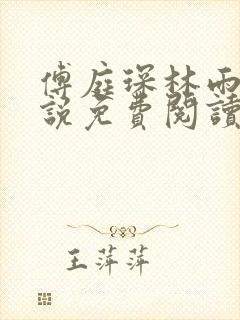 傅庭琛林雨
說免費閱讀
王萍萍